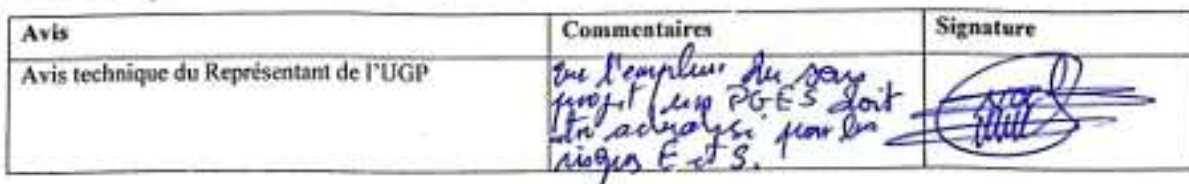 Avis Commentaires Signature
Avis technique du Représentant de l'UGP
vu l'ampleur du sous
projet un PGES doit
être
pour les
risques E et S.